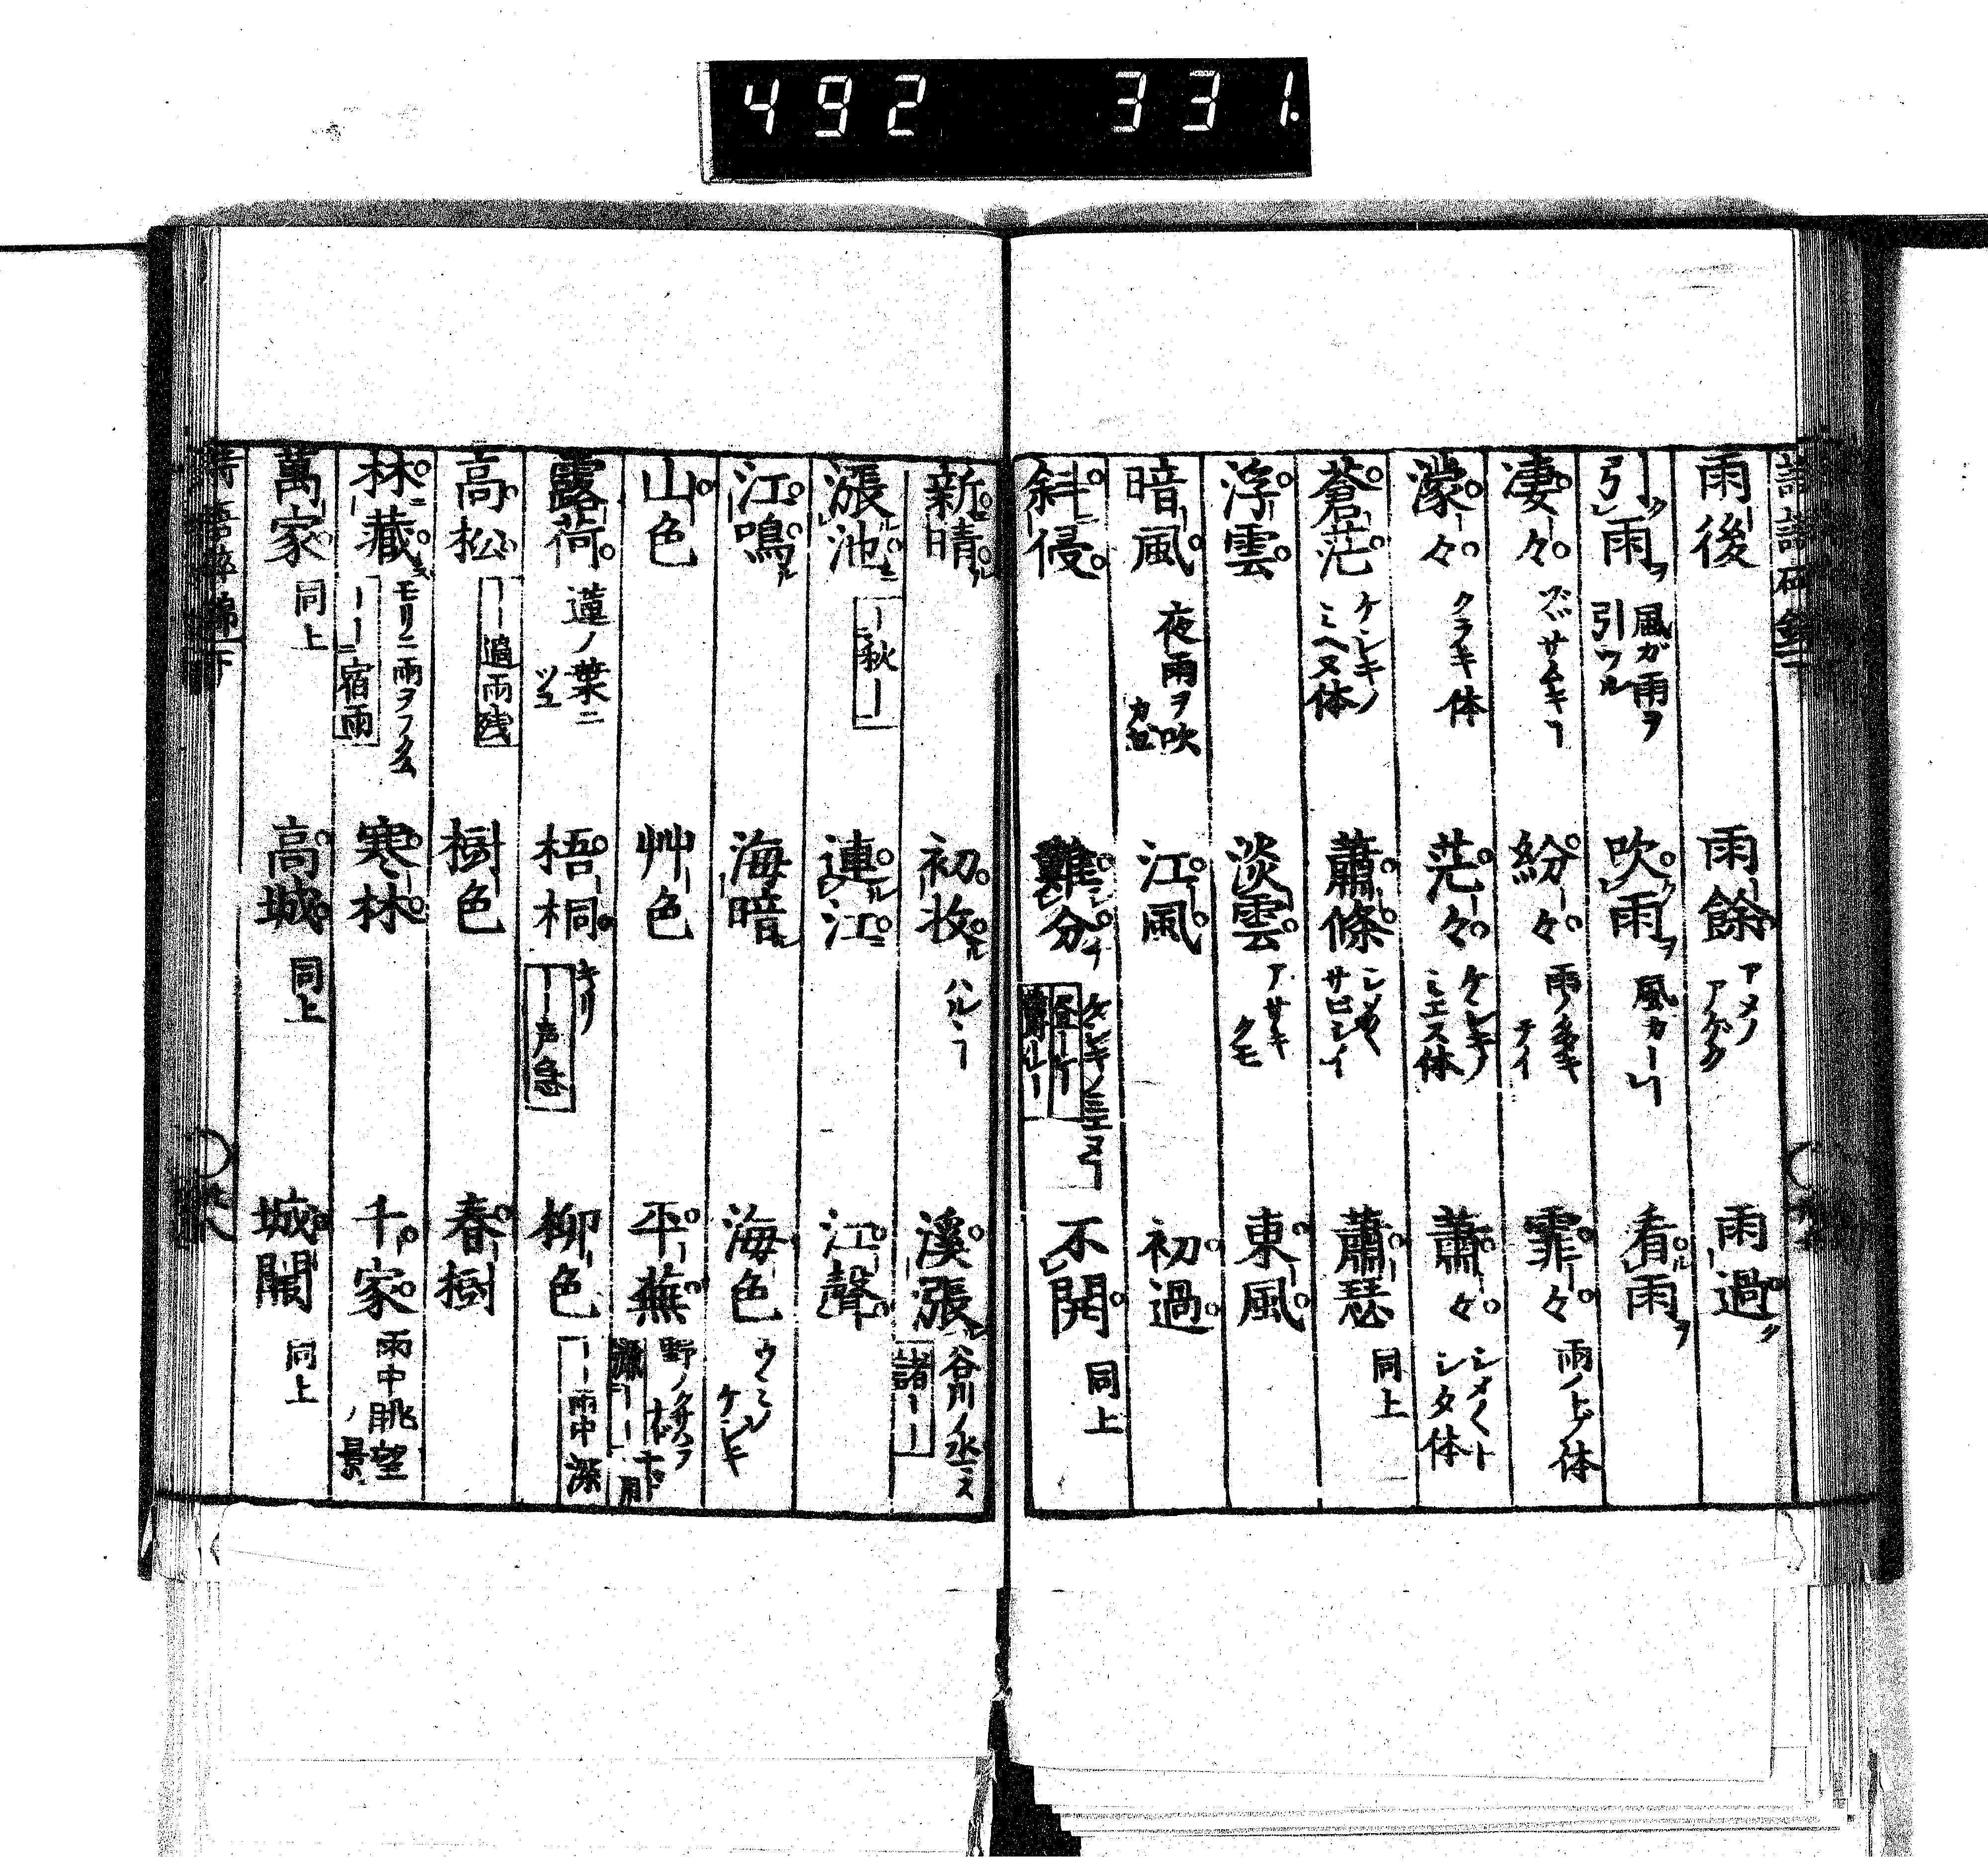 492 331.
雨後 雨餘 アメノアゲク 雨過
引雨 風ガ雨ヲ引ツル 吹雨 看雨
凄々 紛々 雨ノ多キテイ 霏々 雨ノトブ体
濛々 クラキ体 茫々 ケシキノミエヌ体 蕭々 シメ〱トシタ体
蒼茫 ケシキノミヘヌ体 蕭條 蕭瑟 同上
浮雲 淡雲 アサキクモ 東風
暗風 夜雨ヲ吹カゼ 江風 初過
斜侵 難分 不開 同上
新晴 初收 溪漲 谷川ノ水ミス 諸ーー
漲池 ー秋ー 連江 江聲
江鳴 海暗 海色 ウミノケシキ
山色 艸色 平蕪
露荷 蓮ノ葉ニツユ 梧桐 キリ ーー声急 柳色 ーー雨中深
高松 ーー過雨残 樹色 春樹
林藏 モリニ雨ヲフクム ーー宿雨 寒林 千家 雨中眺望ノ景
萬家 同上 高城 同上 城闕 同上